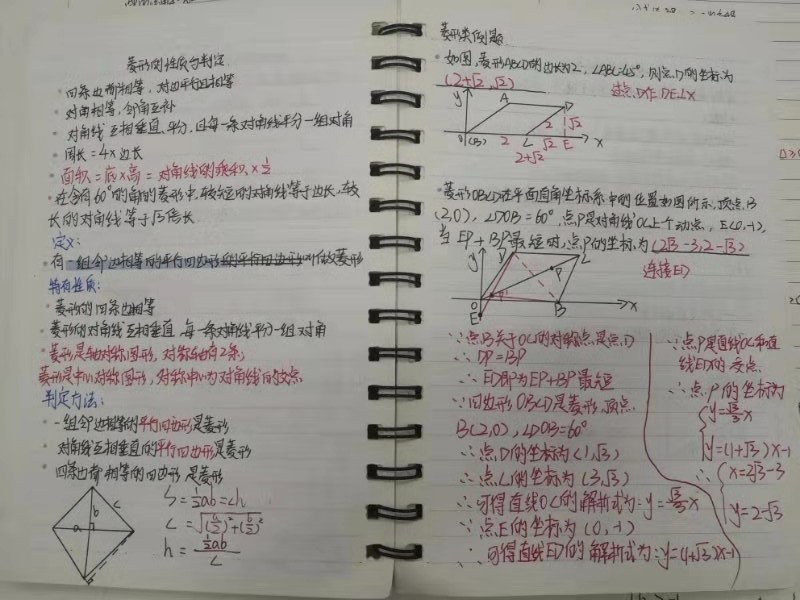 菱形的性质与判定
·四条边都相等,对边平行且相等
·对角相等,邻角互补
·对角线互相垂直、平分,且每一条对角线平分一组对角
·周长=4×边长
·面积=底×高=对角线的乘积×1/2
·在含有60°的角的菱形中,较短的对角线等于边长,较
长的对角线等于√3倍长
定义:
·有一组邻边相等的平行四边形叫做菱形
特有性质:
·菱形的四条边相等
·菱形的对角线互相垂直,每一条对角线平分一组对角
·菱形是轴对称图形,对称轴有2条;
菱形是中心对称图形,对称中心为对角线的交点.
判定方法:
·一组邻边相等的平行四边形是菱形
·对角线互相垂直的平行四边形是菱形
·四条边都相等的四边形是菱形
a b c
S=1/2ab=ch
c=√(a/2)²+(b/2)²
h=1/2ab/c
菱形类例题
·如图,菱形ABCD的边长为2,∠ABC=45°,则点D的坐标为
(2+√2,√2)
过点D作DE⊥x
y A D 2 √2
O(B) 2 C √2 E x
2+√2
·菱形OBCD在平面直角坐标系中的位置如图所示,顶点B
(2,0),∠DOB=60°,点P是对角线OC上一个动点,E(0,-1),
当EP+BP最短时,点P的坐标为(2√3-3,2-√3)
连接ED
y D C P
O B x
E
∵点B关于OC的对称点是点D
∴DP=BP
∴ED即为EP+BP最短
∵四边形OBCD是菱形,顶点
B(2,0),∠DOB=60°
∴点D的坐标为(1,√3)
∴点C的坐标为(3,√3)
∴可得直线OC的解析式为:y=√3/3x
∵点E的坐标为(0,-1)
∴可得直线ED的解析式为:y=(1+√3)x-1
∵点P是直线OC和直
线ED的交点
∴点P的坐标为
y=√3/3x
y=(1+√3)x-1
∴x=2√3-3
y=2-√3